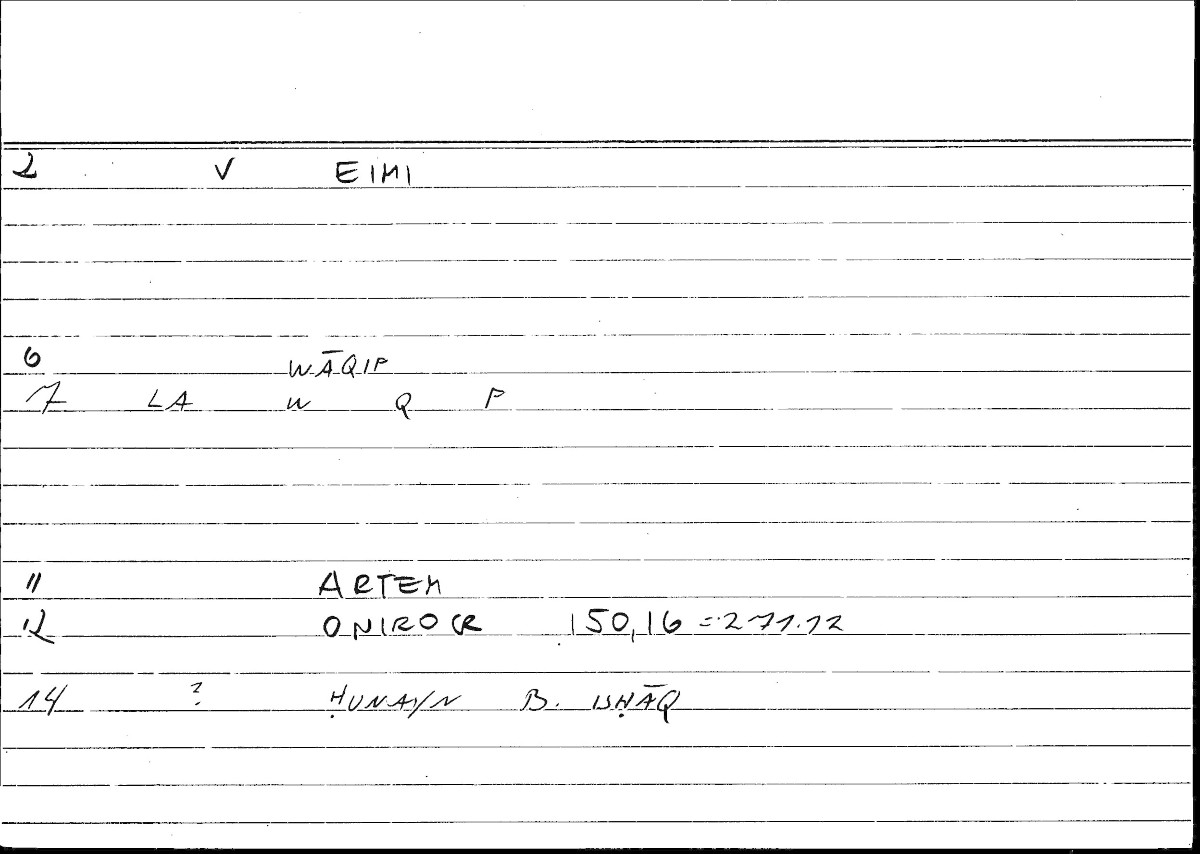 2 V EIMI
6 WĀQIF
7 LA W Q F
11 ARTEM
12 ONIROCR 150,16 = 271.12
14 ? ḤUNAYN B. ISḤĀQ